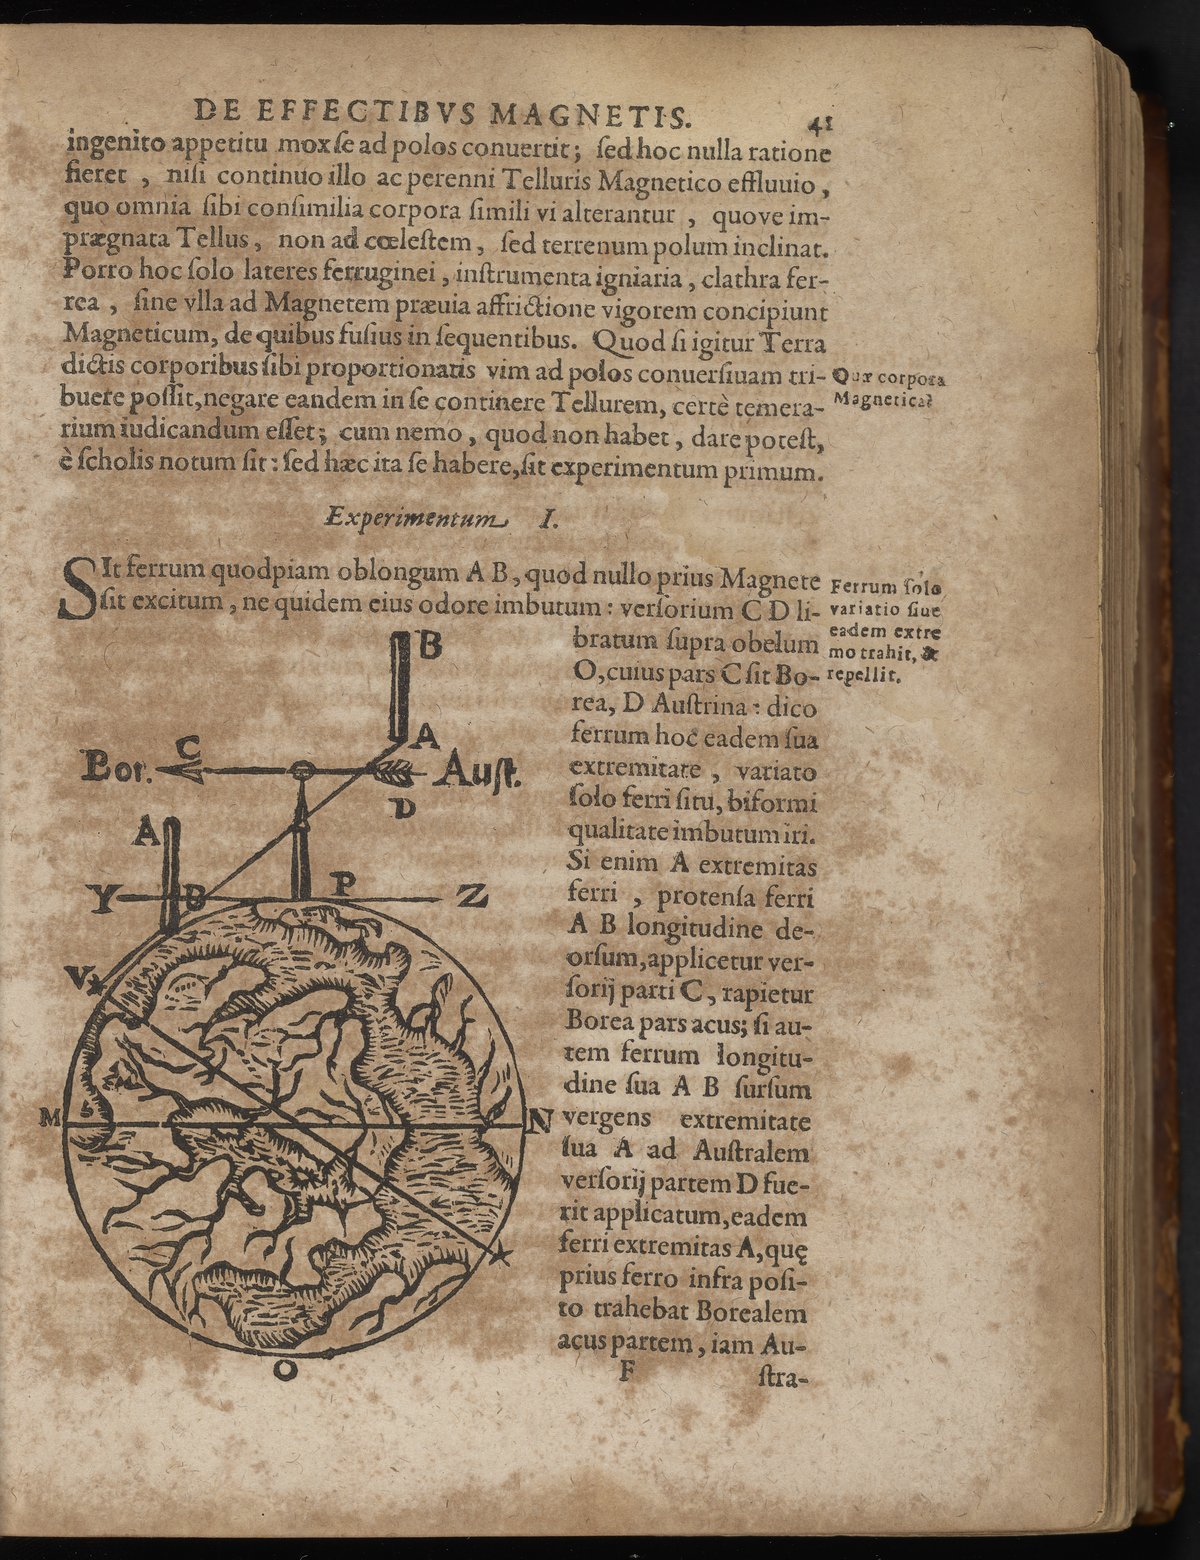 DE EFFECTIBVS MAGNETIS. 41
ingenito appetitu mox ſe ad polos conuertit; ſed hoc nulla ratione
fieret , niſi continuo illo ac perenni Telluris Magnetico effluuio ,
quo omnia ſibi conſimilia corpora ſimili vi alterantur , quove im-
prægnata Tellus, non ad cœleſtem, ſed terrenum polum inclinat.
Porro hoc ſolo lateres ferruginei, inſtrumenta igniaria, clathra fer-
rea , ſine vlla ad Magnetem præuia affrictione vigorem concipiunt
Magneticum, de quibus fuſius in ſequentibus. Quod ſi igitur Terra
dictis corporibus ſibi proportionatis vim ad polos conuerſiuam tri-
buere poſſit, negare eandem in ſe continere Tellurem, certè temera-
rium iudicandum eſſet; cum nemo, quod non habet, dare poteſt,
è ſcholis notum ſit: ſed hæc ita ſe habere, ſit experimentum primum.
Quæ corpora
Magnetica?
Experimentum I.
SIt ferrum quodpiam oblongum A B, quod nullo prius Magnete
ſit excitum, ne quidem eius odore imbutum: verſorium C D li-
bratum ſupra obelum
O, cuius pars C ſit Bo-
rea, D Auſtrina: dico
ferrum hoc eadem ſua
extremitate , variato
ſolo ferri ſitu, biformi
qualitate imbutum iri.
Si enim A extremitas
ferri , protenſa ferri
A B longitudine de-
orſum, applicetur ver-
ſorij parti C, rapietur
Borea pars acus; ſi au-
tem ferrum longitu-
dine ſua A B ſurſum
vergens extremitate
ſua A ad Auſtralem
verſorij partem D fue-
rit applicatum, eadem
ferri extremitas A, quę
prius ferro infra poſi-
to trahebat Borealem
acus partem, iam Au-
F ſtra-
Ferrum ſolo
variatio ſiue
eadem extre
mo trahit, &
repellit.
B
A
C
Bor.
Auſt.
D
A
Y
B
P
Z
V
M
N
O